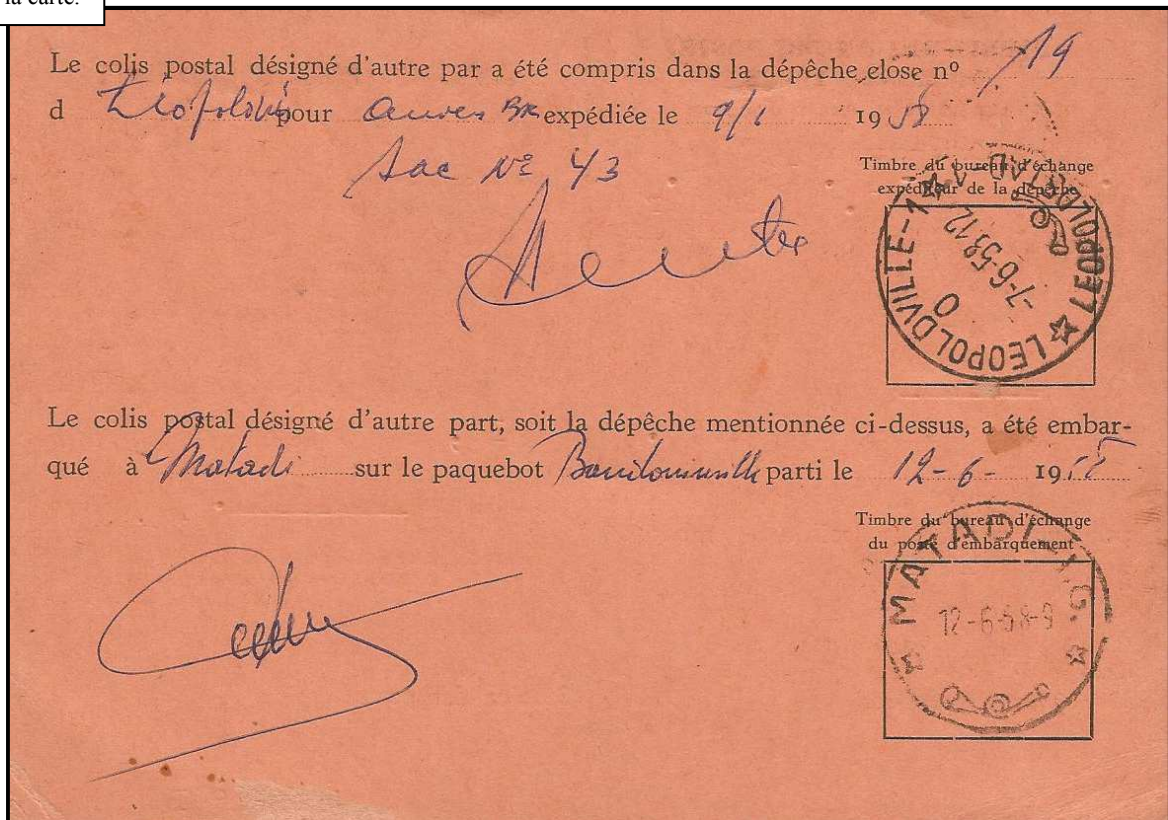 la carte.
Le colis postal désigné d'autre par a été compris dans la dépêche close nº 19
d Léopoldvi pour Anvers Bk expédiée le 9/6 1958
Sac Nº 43
Timbre du bureau d'échange
expéditeur de la dépêche
LEOPOLDVILLE-1
LEOPOLDSTAD-1
7-6-58-12
O
Le colis postal désigné d'autre part, soit la dépêche mentionnée ci-dessus, a été embar-
qué à Matadi sur le paquebot Baudouinville parti le 12-6- 19
Timbre du bureau d'échange
du poste d'embarquement
MATADI
12-6-58-9